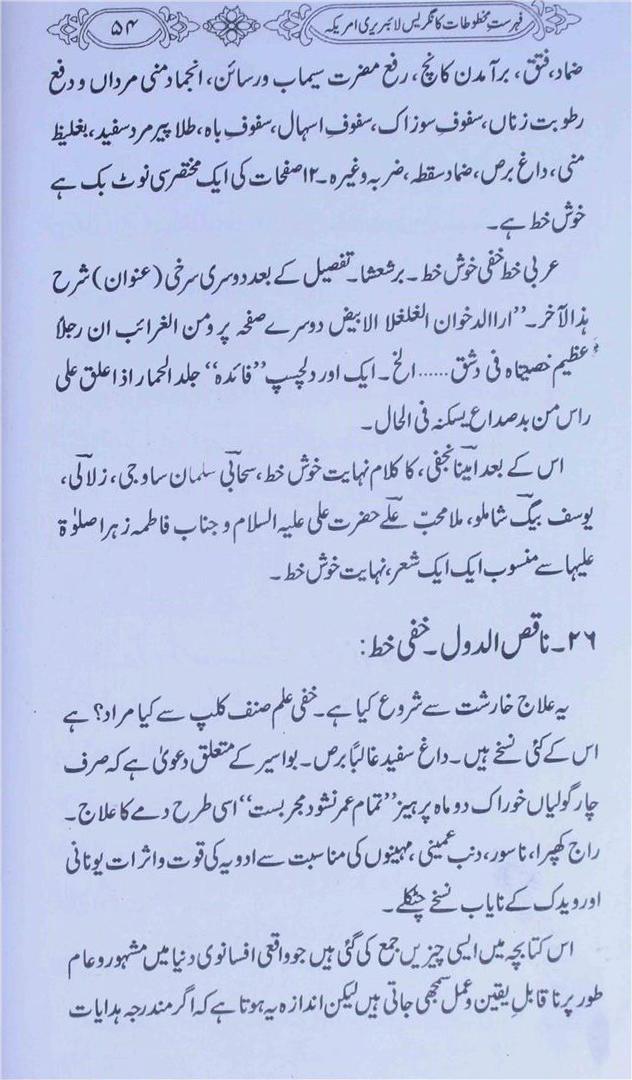 فہرستِ مخطوطات کانگریس لائبریری امریکہ
۵۴
ضماد، فتق، برآمدن کانچ، رفع مضرت سیماب ورسائن، انجماد منی مرداں و دفع
رطوبت زناں، سفوفِ سوزاک، سفوفِ اسہال، سفوفِ باہ، طلا پیر مرد سفید، بغلیظ
منی، داغ برص، ضماد سقطہ، ضربہ وغیرہ۔ ۱۲ صفحات کی ایک مختصر سی نوٹ بک ہے
خوش خط ہے۔
عربی خط خفی خوش خط۔ برشعشا۔ تفصیل کے بعد دوسری سرخی (عنوان) شرح
ہذا الآخر۔ ”ارا الدخوان الغلغلا الابیض دوسرے صفحہ پر ومن الغرائب ان رجلاً
عظیم خصیتاہ فی دشق...... الخ۔ ایک اور دلچسپ ”فائدہ“ جلد الحمار اذا علق علی
راس من بہ صداع یسکنہ فی الحال۔
اس کے بعد امینا نجفی، کا کلام نہایت خوش خط، سحابی سلمان ساوجی، زلالی،
یوسف بیگ شاملو، ملا محبّ علے حضرت علی علیہ السلام و جناب فاطمہ زہرا صلوٰۃ
علیہا سے منسوب ایک ایک شعر، نہایت خوش خط۔
۲۶۔ ناقص الدول۔ خفی خط:
یہ علاج خارشت سے شروع کیا ہے۔ خفی علم صنف کلپ سے کیا مراد؟ ہے
اس کے کئی نسخے ہیں۔ داغ سفید غالباً برص۔ بواسیر کے متعلق دعویٰ ہے کہ صرف
چار گولیاں خوراک دو ماہ پرہیز ”تمام عمر نشود مجرب ست“ اسی طرح دمے کا علاج۔
راج کھپرا، ناسور، دنب عمینی، مہینوں کی مناسبت سے ادویہ کی قوت و اثرات یونانی
اور ویدک کے نایاب نسخے چٹکلے۔
اس کتابچہ میں ایسی چیزیں جمع کی گئی ہیں جو واقعی افسانوی دنیا میں مشہور و عام
طور پر ناقابلِ یقین و عمل سمجھی جاتی ہیں لیکن اندازہ یہ ہوتا ہے کہ اگر مندرجہ ہدایات